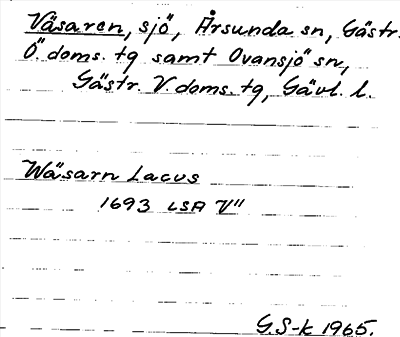 Väsaren, sjö, Årsunda sn, Gästr.
Ö. doms. tg samt Ovansjö sn,
Gästr. V. doms. tg, Gävl. l.
Wäsarn Lacus
1693 LSA V"
G.S-k 1965.